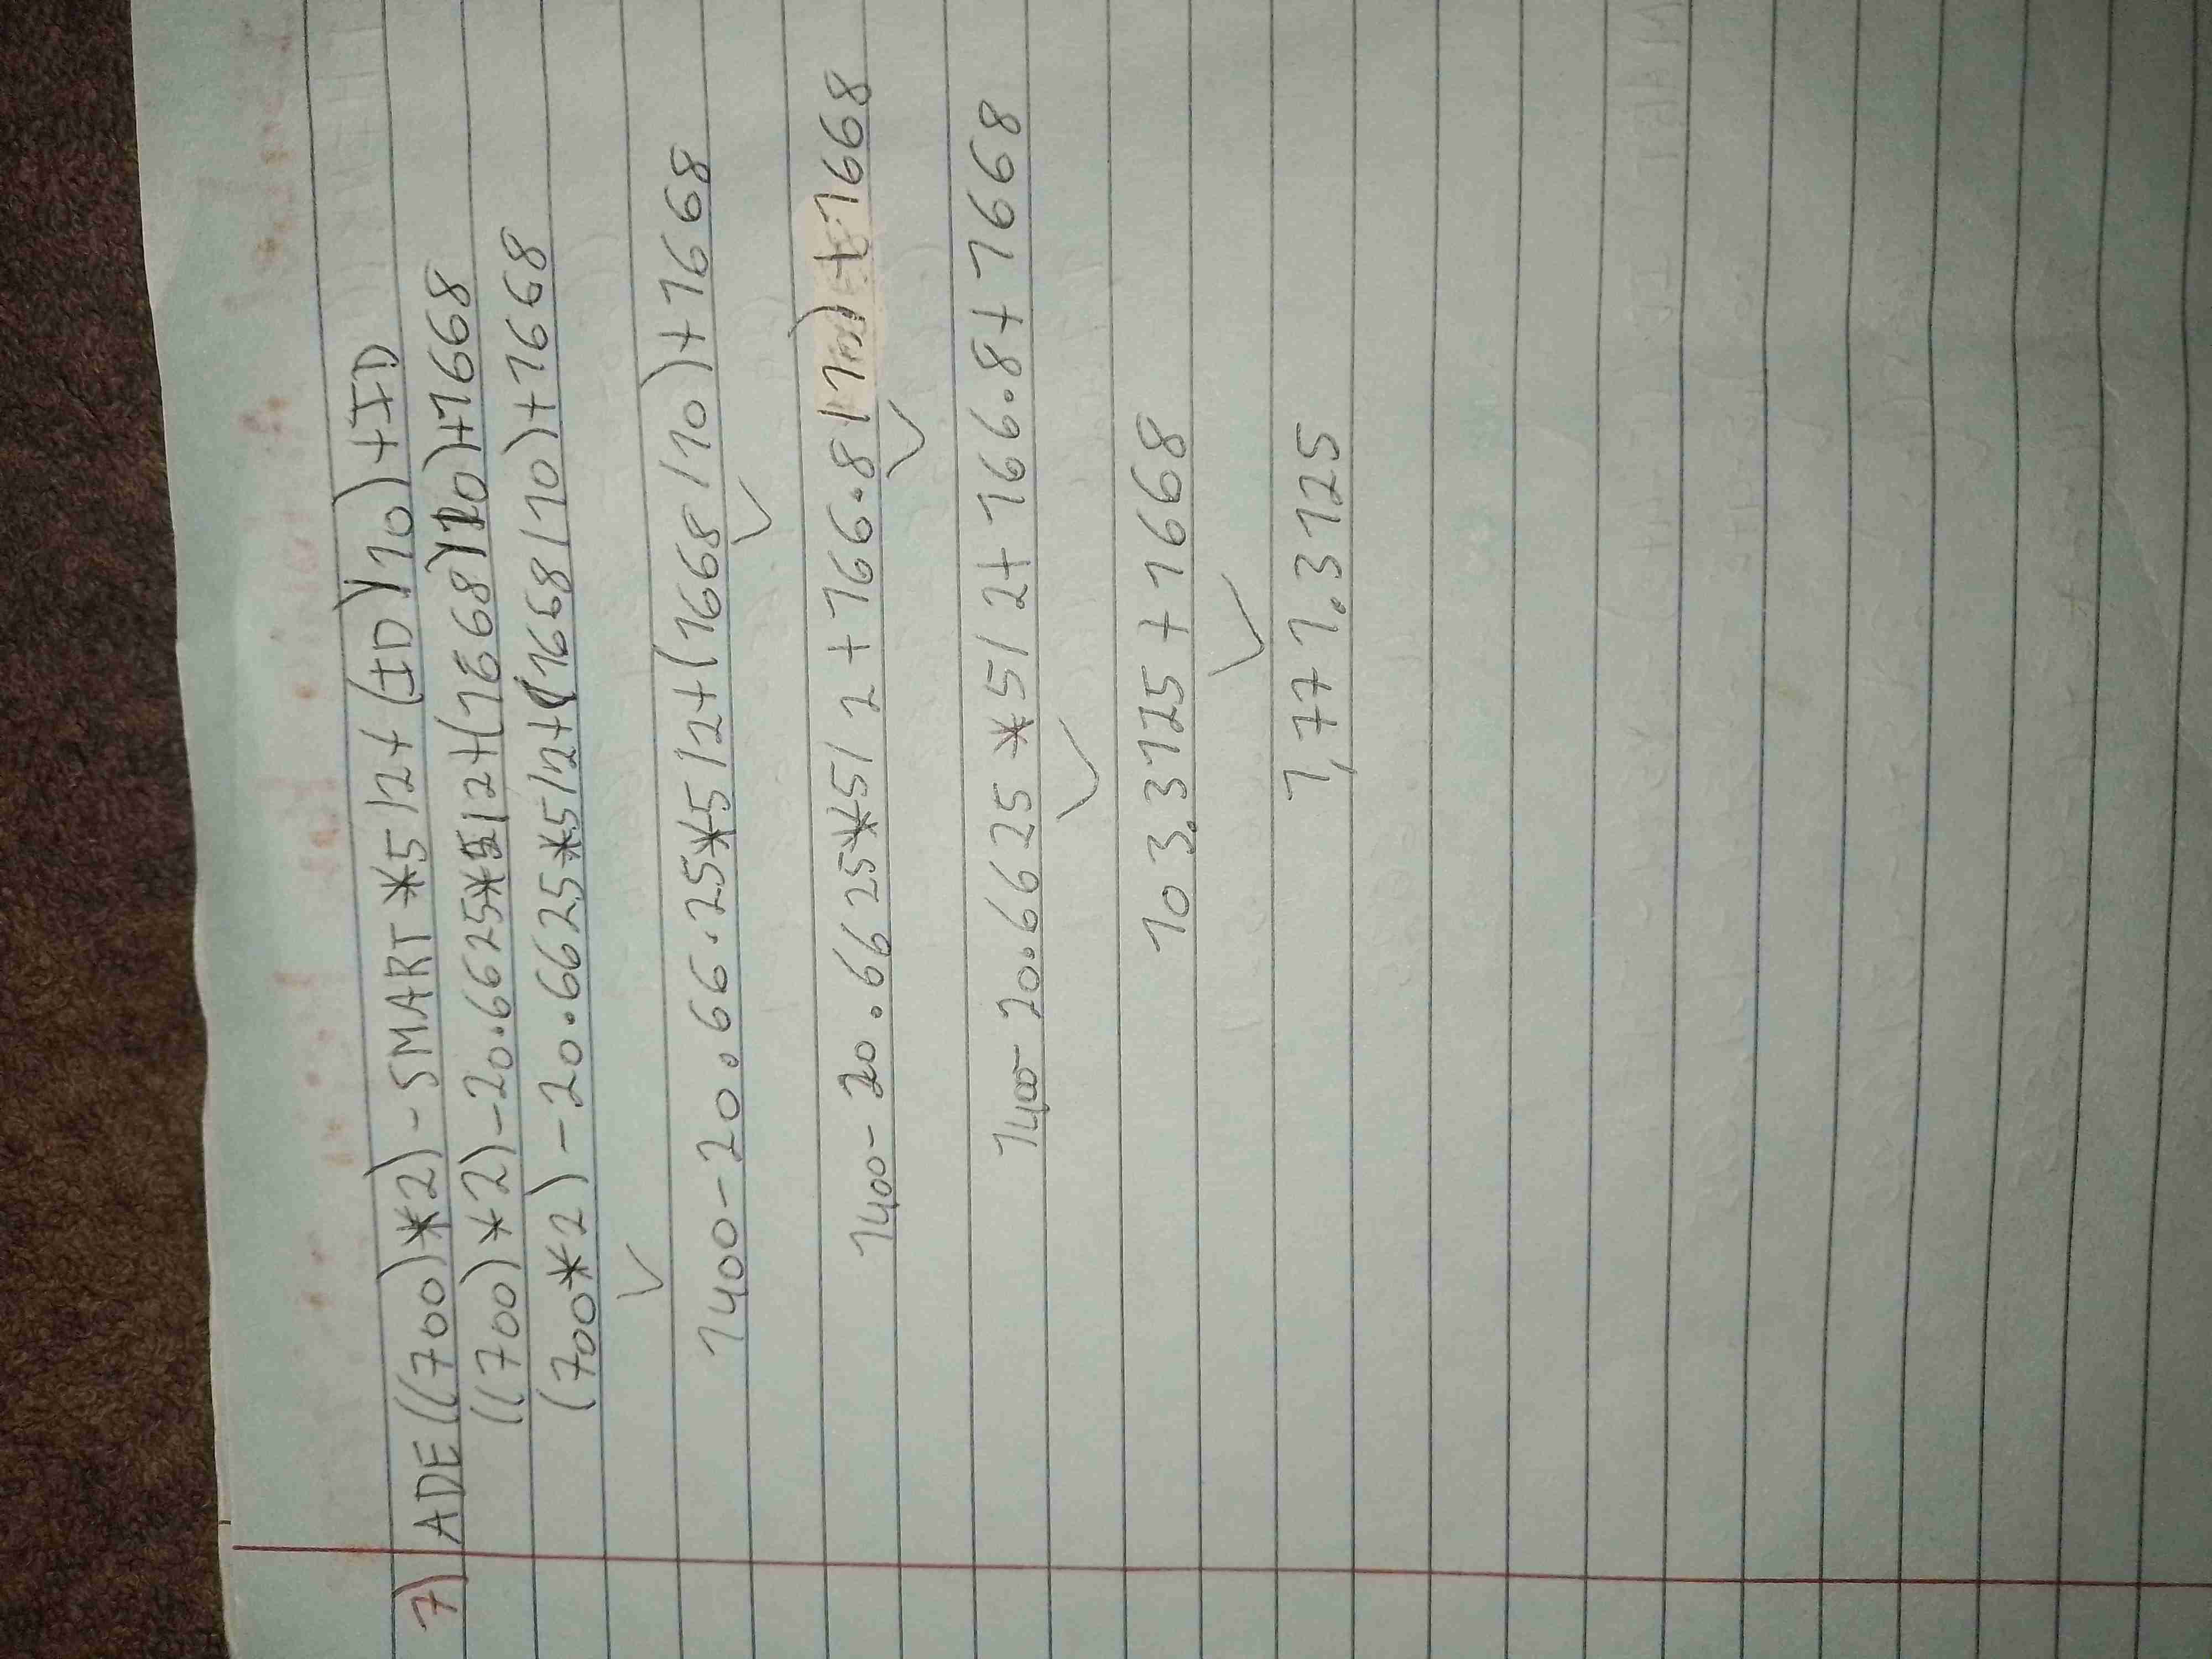 7) ADE ((700)*2)-SMART*5/2+(ID)/10)+ID
((700)*2)-20.6625*5/2+(1668)/10)+1668
(700*2)-20.6625*5/2+(1668/10)+1668
1400-20.66.25*5/2+(1668/10)+1668
1400-20.6625*5/2+166.8/10)+1668
1400-20.6625*5/2+166.8+1668
103.3125+1668
1,771.3125